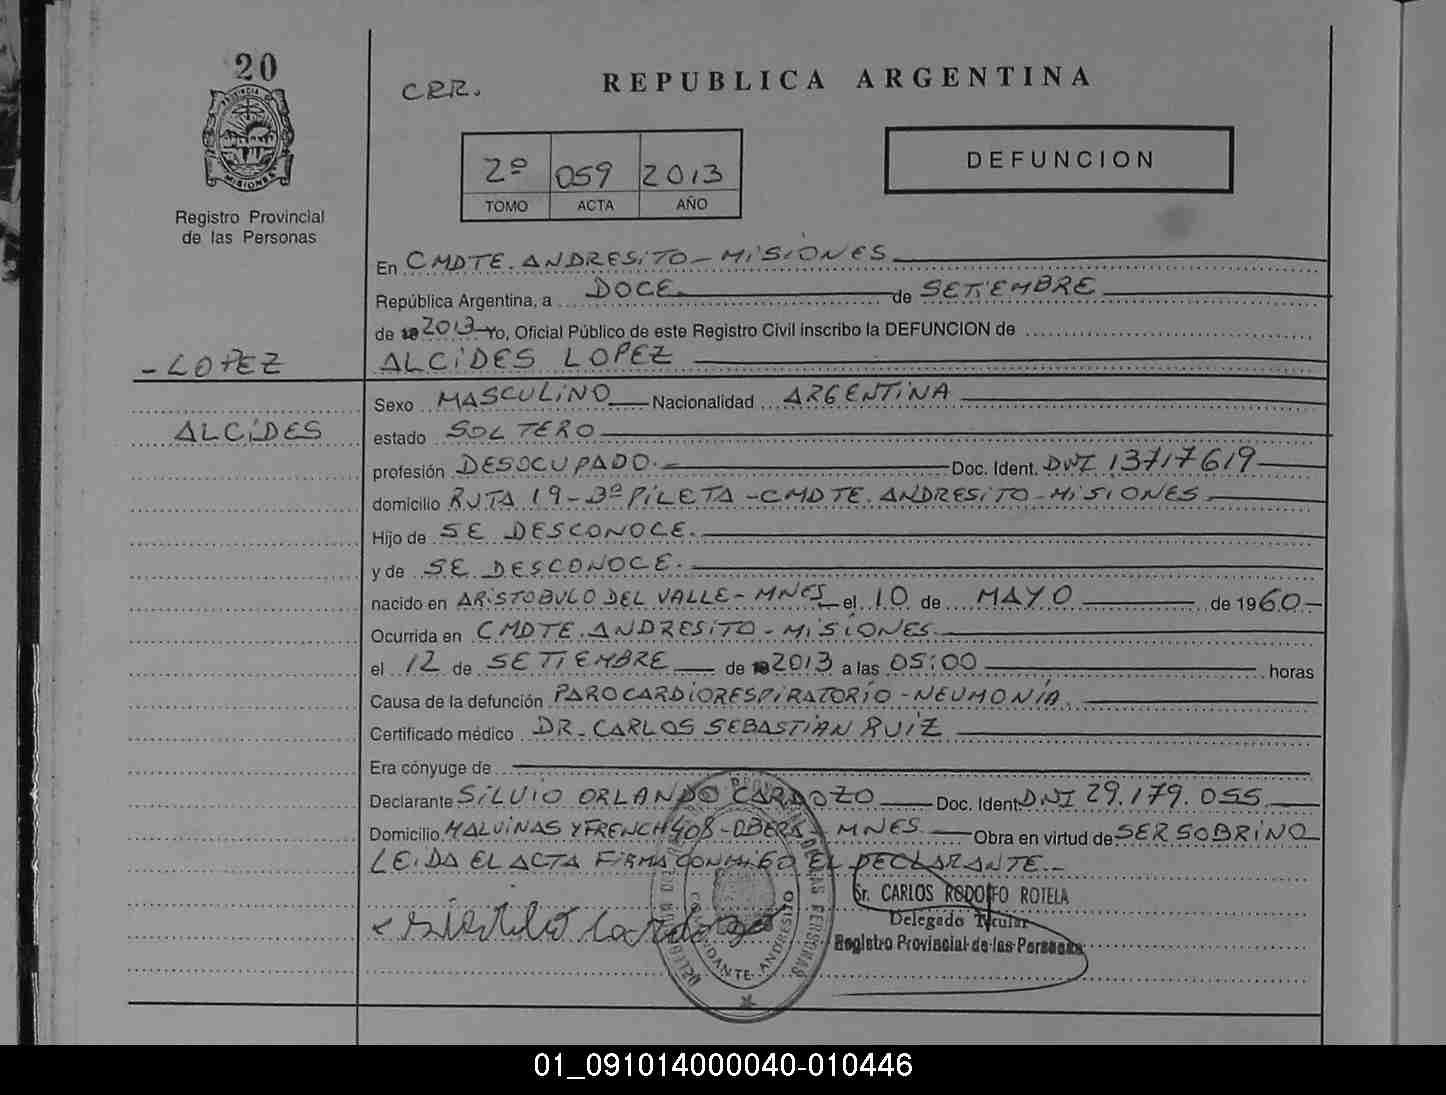 20
CRR.
REPUBLICA ARGENTINA
PROVINCIA DE
MISIONES
Registro Provincial
de las Personas
2º 059 2013
TOMO ACTA AÑO
DEFUNCION
En CMDTE. ANDRESITO - MISIONES
República Argentina, a DOCE de SETIEMBRE
de 2013 Yo, Oficial Público de este Registro Civil inscribo la DEFUNCION de
- LOPEZ
ALCIDES LOPEZ
Sexo MASCULINO Nacionalidad ARGENTINA
ALCIDES
estado SOLTERO
profesión DESOCUPADO.- Doc. Ident. DNI 13717619
domicilio RUTA 19 - 3º PILETA - CMDTE. ANDRESITO - MISIONES
Hijo de SE DESCONOCE.
y de SE DESCONOCE.
nacido en ARISTOBULO DEL VALLE - MNES el 10 de MAYO de 1960-
Ocurrida en CMDTE. ANDRESITO - MISIONES
el 12 de SETIEMBRE de 2013 a las 05:00 horas
Causa de la defunción PARO CARDIORESPIRATORIO - NEUMONIA.
Certificado médico DR. CARLOS SEBASTIAN RUIZ
Era cónyuge de
Declarante SILVIO ORLANDO CARDOZO Doc. Ident. DNI 29.179.055
Domicilio MALVINAS Y FRENCH 408 - OBERA - MNES Obra en virtud de SER SOBRINO
LEIDA EL ACTA FIRMA CONMIGO EL DECLARANTE.-
Sr. CARLOS RODOLFO ROTELA
Delegado Titular
Registro Provincial de las Personas
COMANDANTE ANDRESITO
01_091014000040-010446